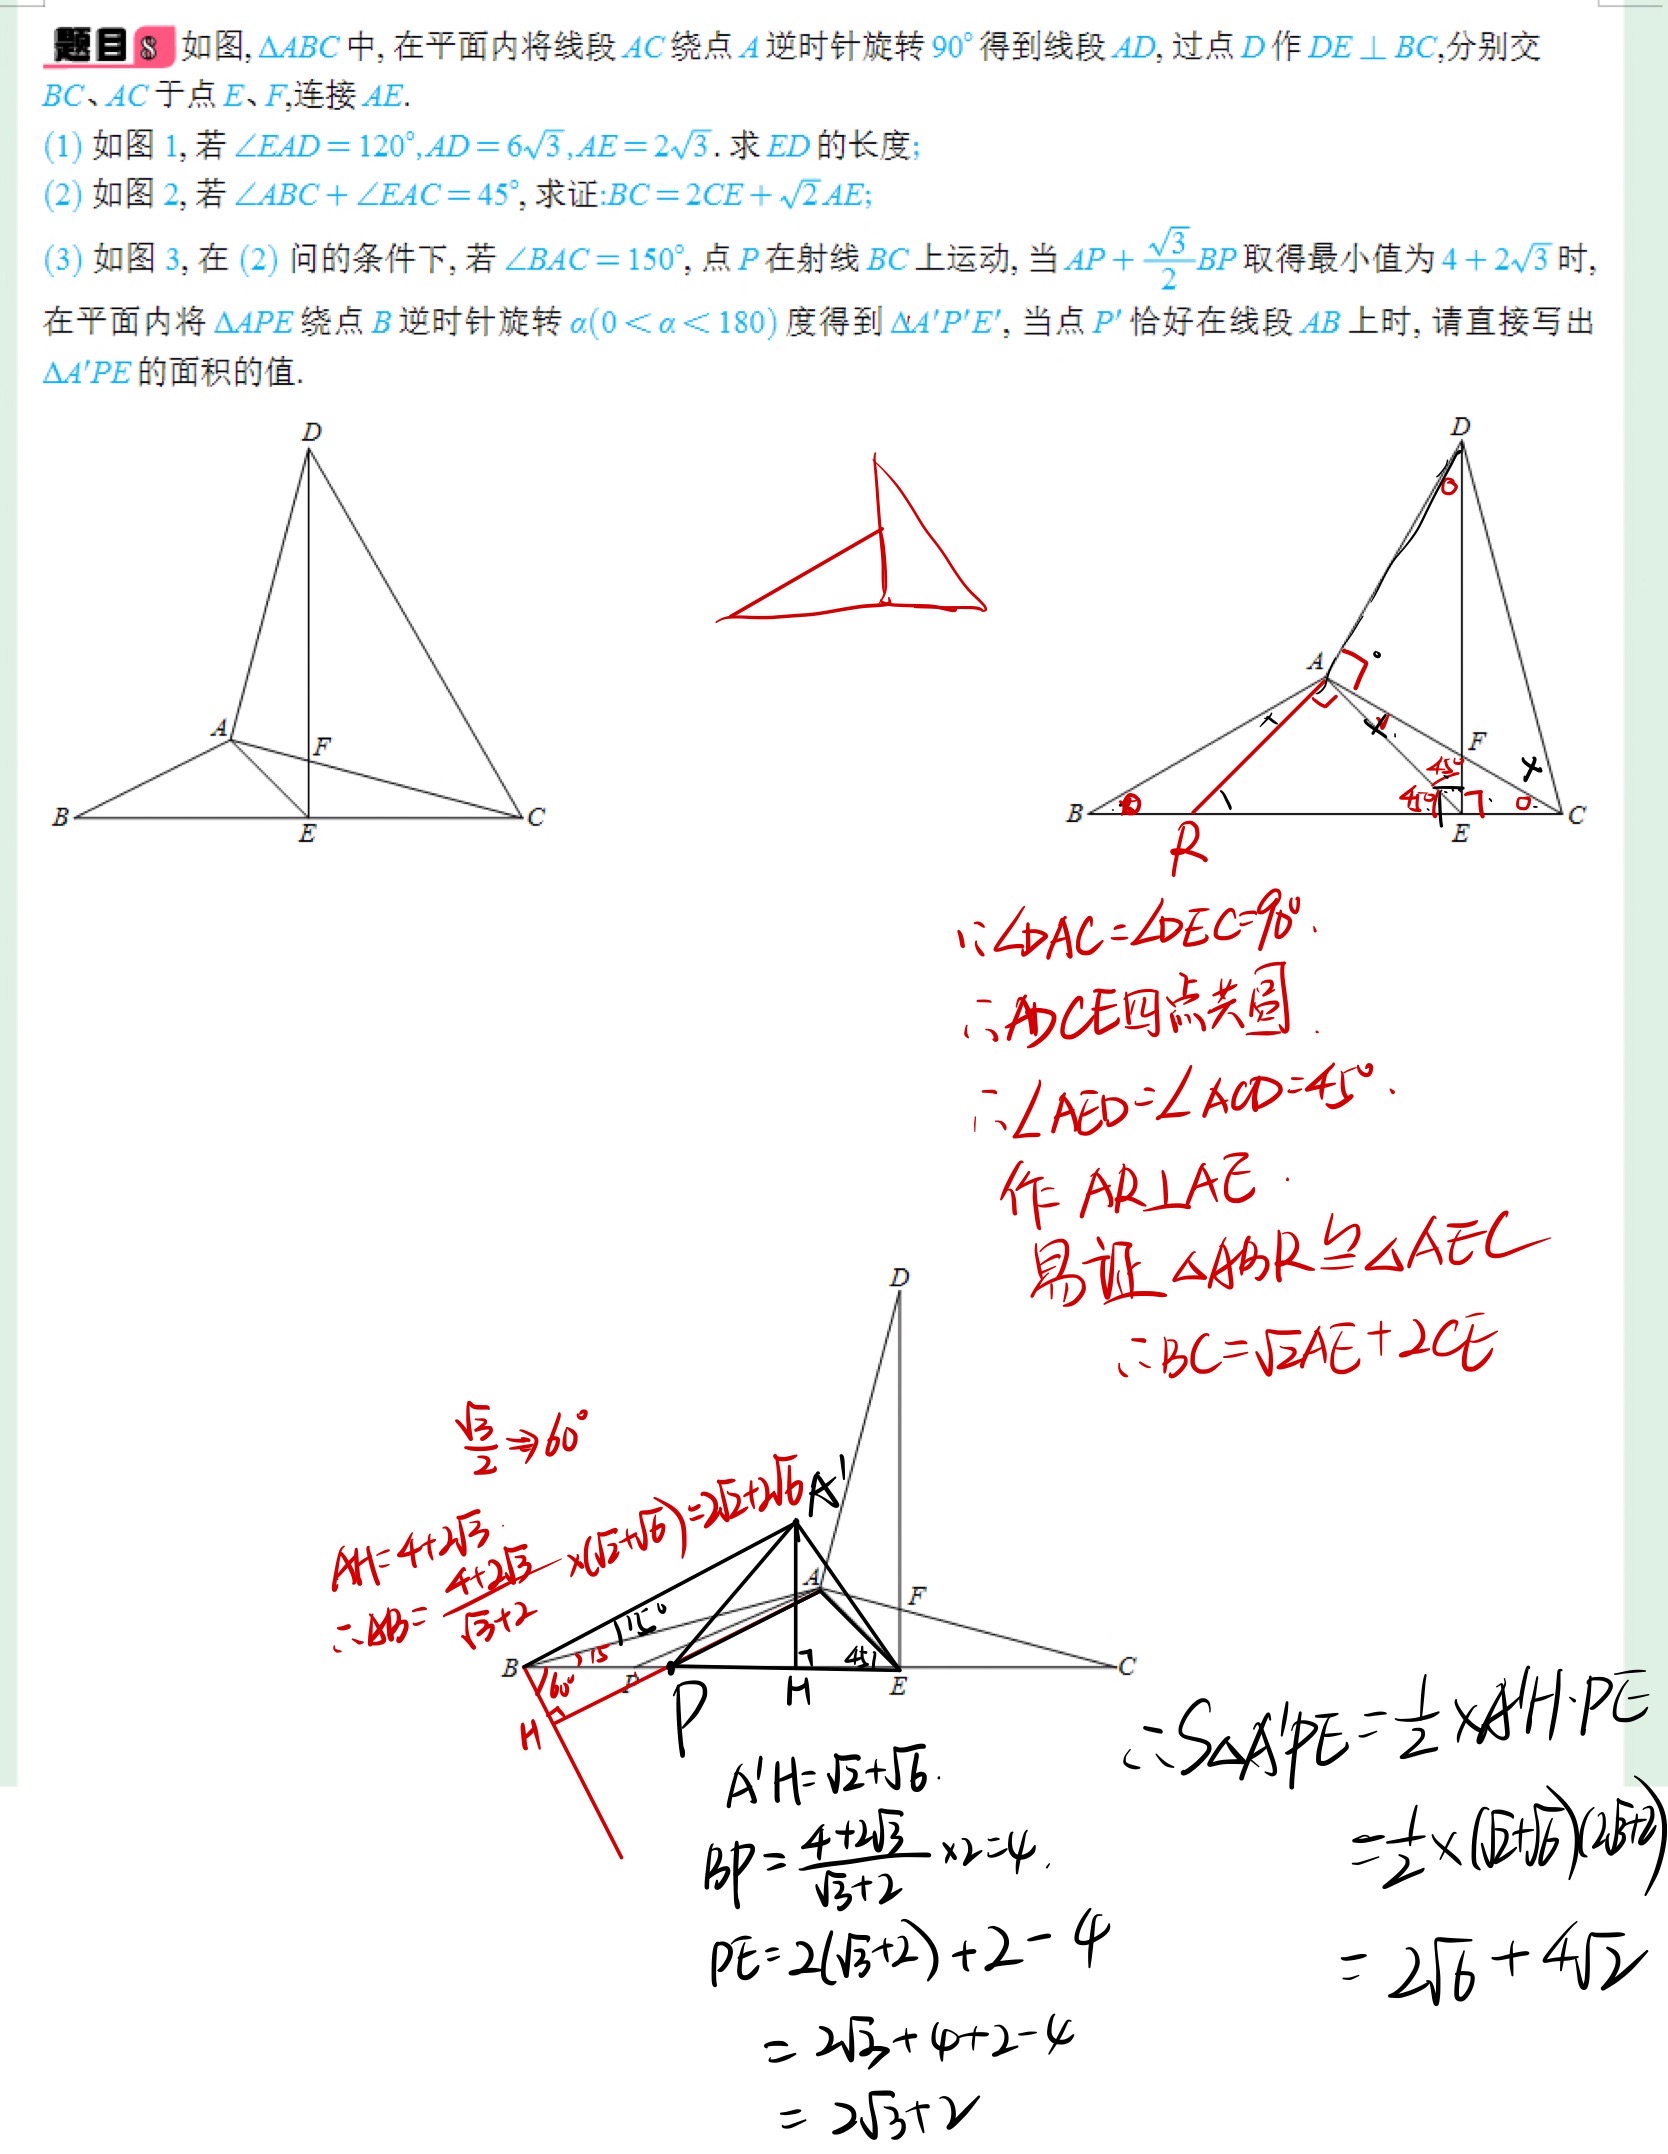 题目 8 如图, ΔABC 中, 在平面内将线段 AC 绕点 A 逆时针旋转 90° 得到线段 AD, 过点 D 作 DE ⊥ BC,分别交
BC、AC 于点 E、F,连接 AE.
(1) 如图 1, 若 ∠EAD = 120°,AD = 6√3,AE = 2√3. 求 ED 的长度;
(2) 如图 2, 若 ∠ABC + ∠EAC = 45°, 求证:BC = 2CE + √2AE;
(3) 如图 3, 在 (2) 问的条件下, 若 ∠BAC = 150°, 点 P 在射线 BC 上运动, 当 AP + √3/2 BP 取得最小值为 4 + 2√3 时,
在平面内将 ΔAPE 绕点 B 逆时针旋转 α(0 < α < 180) 度得到 ΔA′P′E′, 当点 P′ 恰好在线段 AB 上时, 请直接写出
ΔA′PE 的面积的值.
D
A
F
B
E
C
D
A
F
45°
45°
B
R
E
C
∵∠DAC=∠DEC=90°.
∴ADCE四点共圆.
∴∠AED=∠ACD=45°.
作 AR⊥AE.
易证 △ABR≌△AEC
∴BC=√2AE+2CE
D
√3/2 ⇒60°
A′
AH=4+2√3.
∴AB= (4+2√3)/(√3+2) ×(√2+√6)=2√2+2√6
A
F
15°
15
45
B
60°
P
H
E
C
H
P
A′H=√2+√6.
BP= (4+2√3)/(√3+2) ×2=4.
PE=2(√3+2)+2-4
= 2√3+4+2-4
= 2√3+2
∴S△A′PE= 1/2 ×A′H·PE
= 1/2 ×(√2+√6)(2√3+2)
= 2√6+4√2